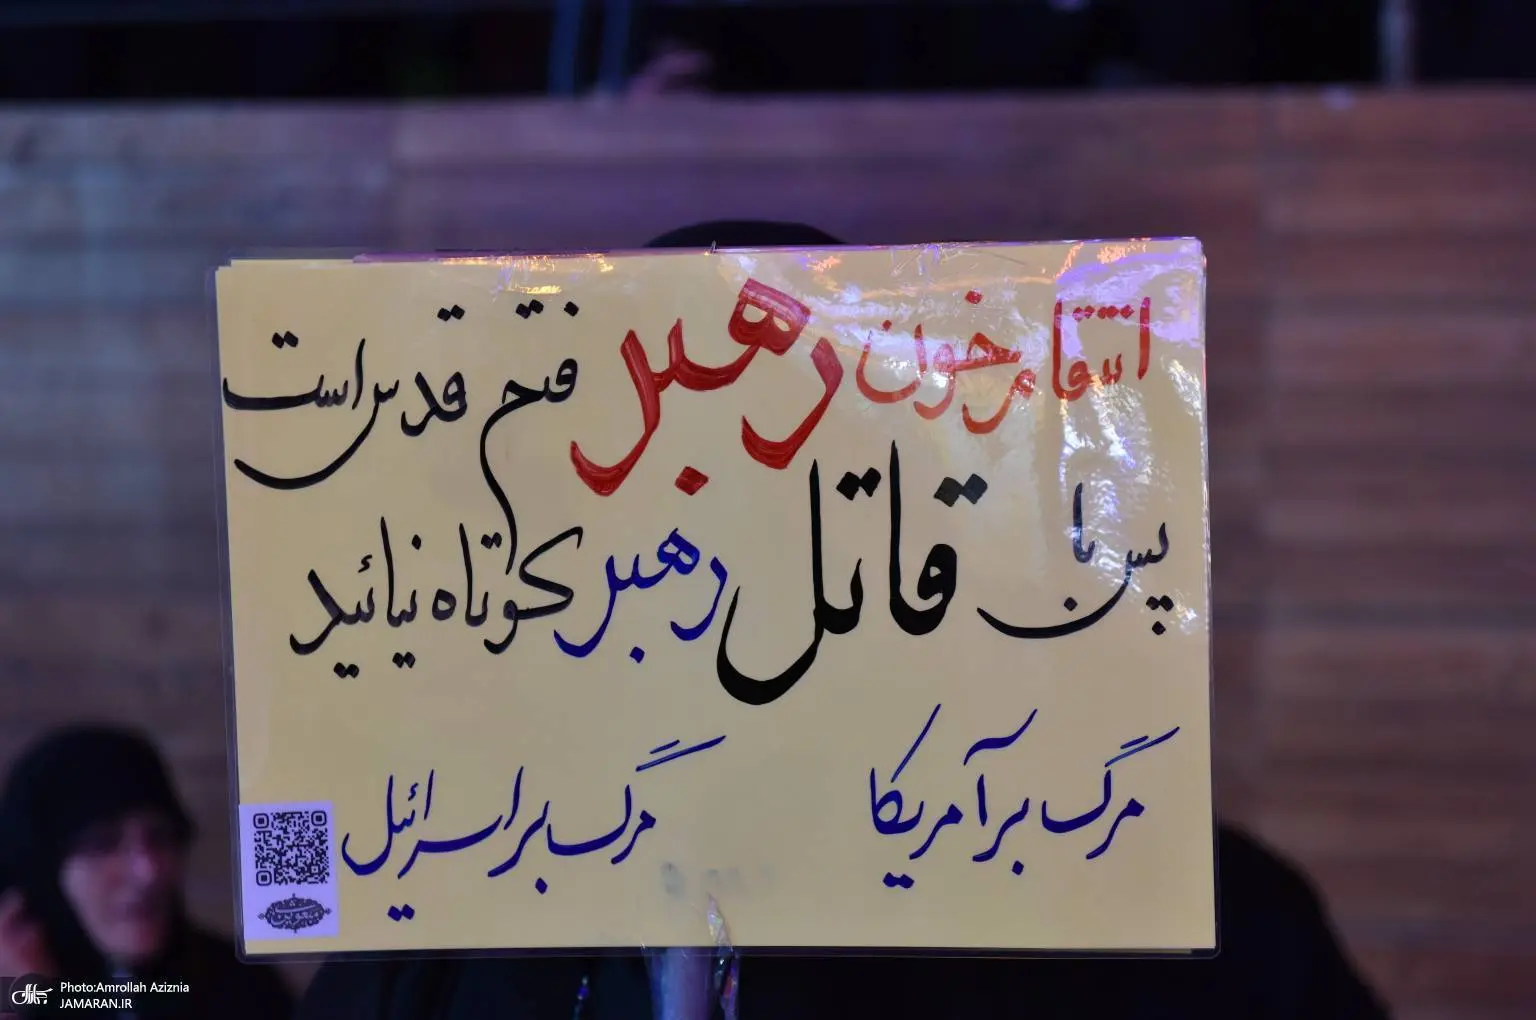 انتقام خون رهبر فتح قدس است
پس با قاتل رهبر کوتاه نیائید
مرگ بر آمریکا
مرگ بر اسرائیل
Photo:Amrollah Aziznia
JAMARAN.IR